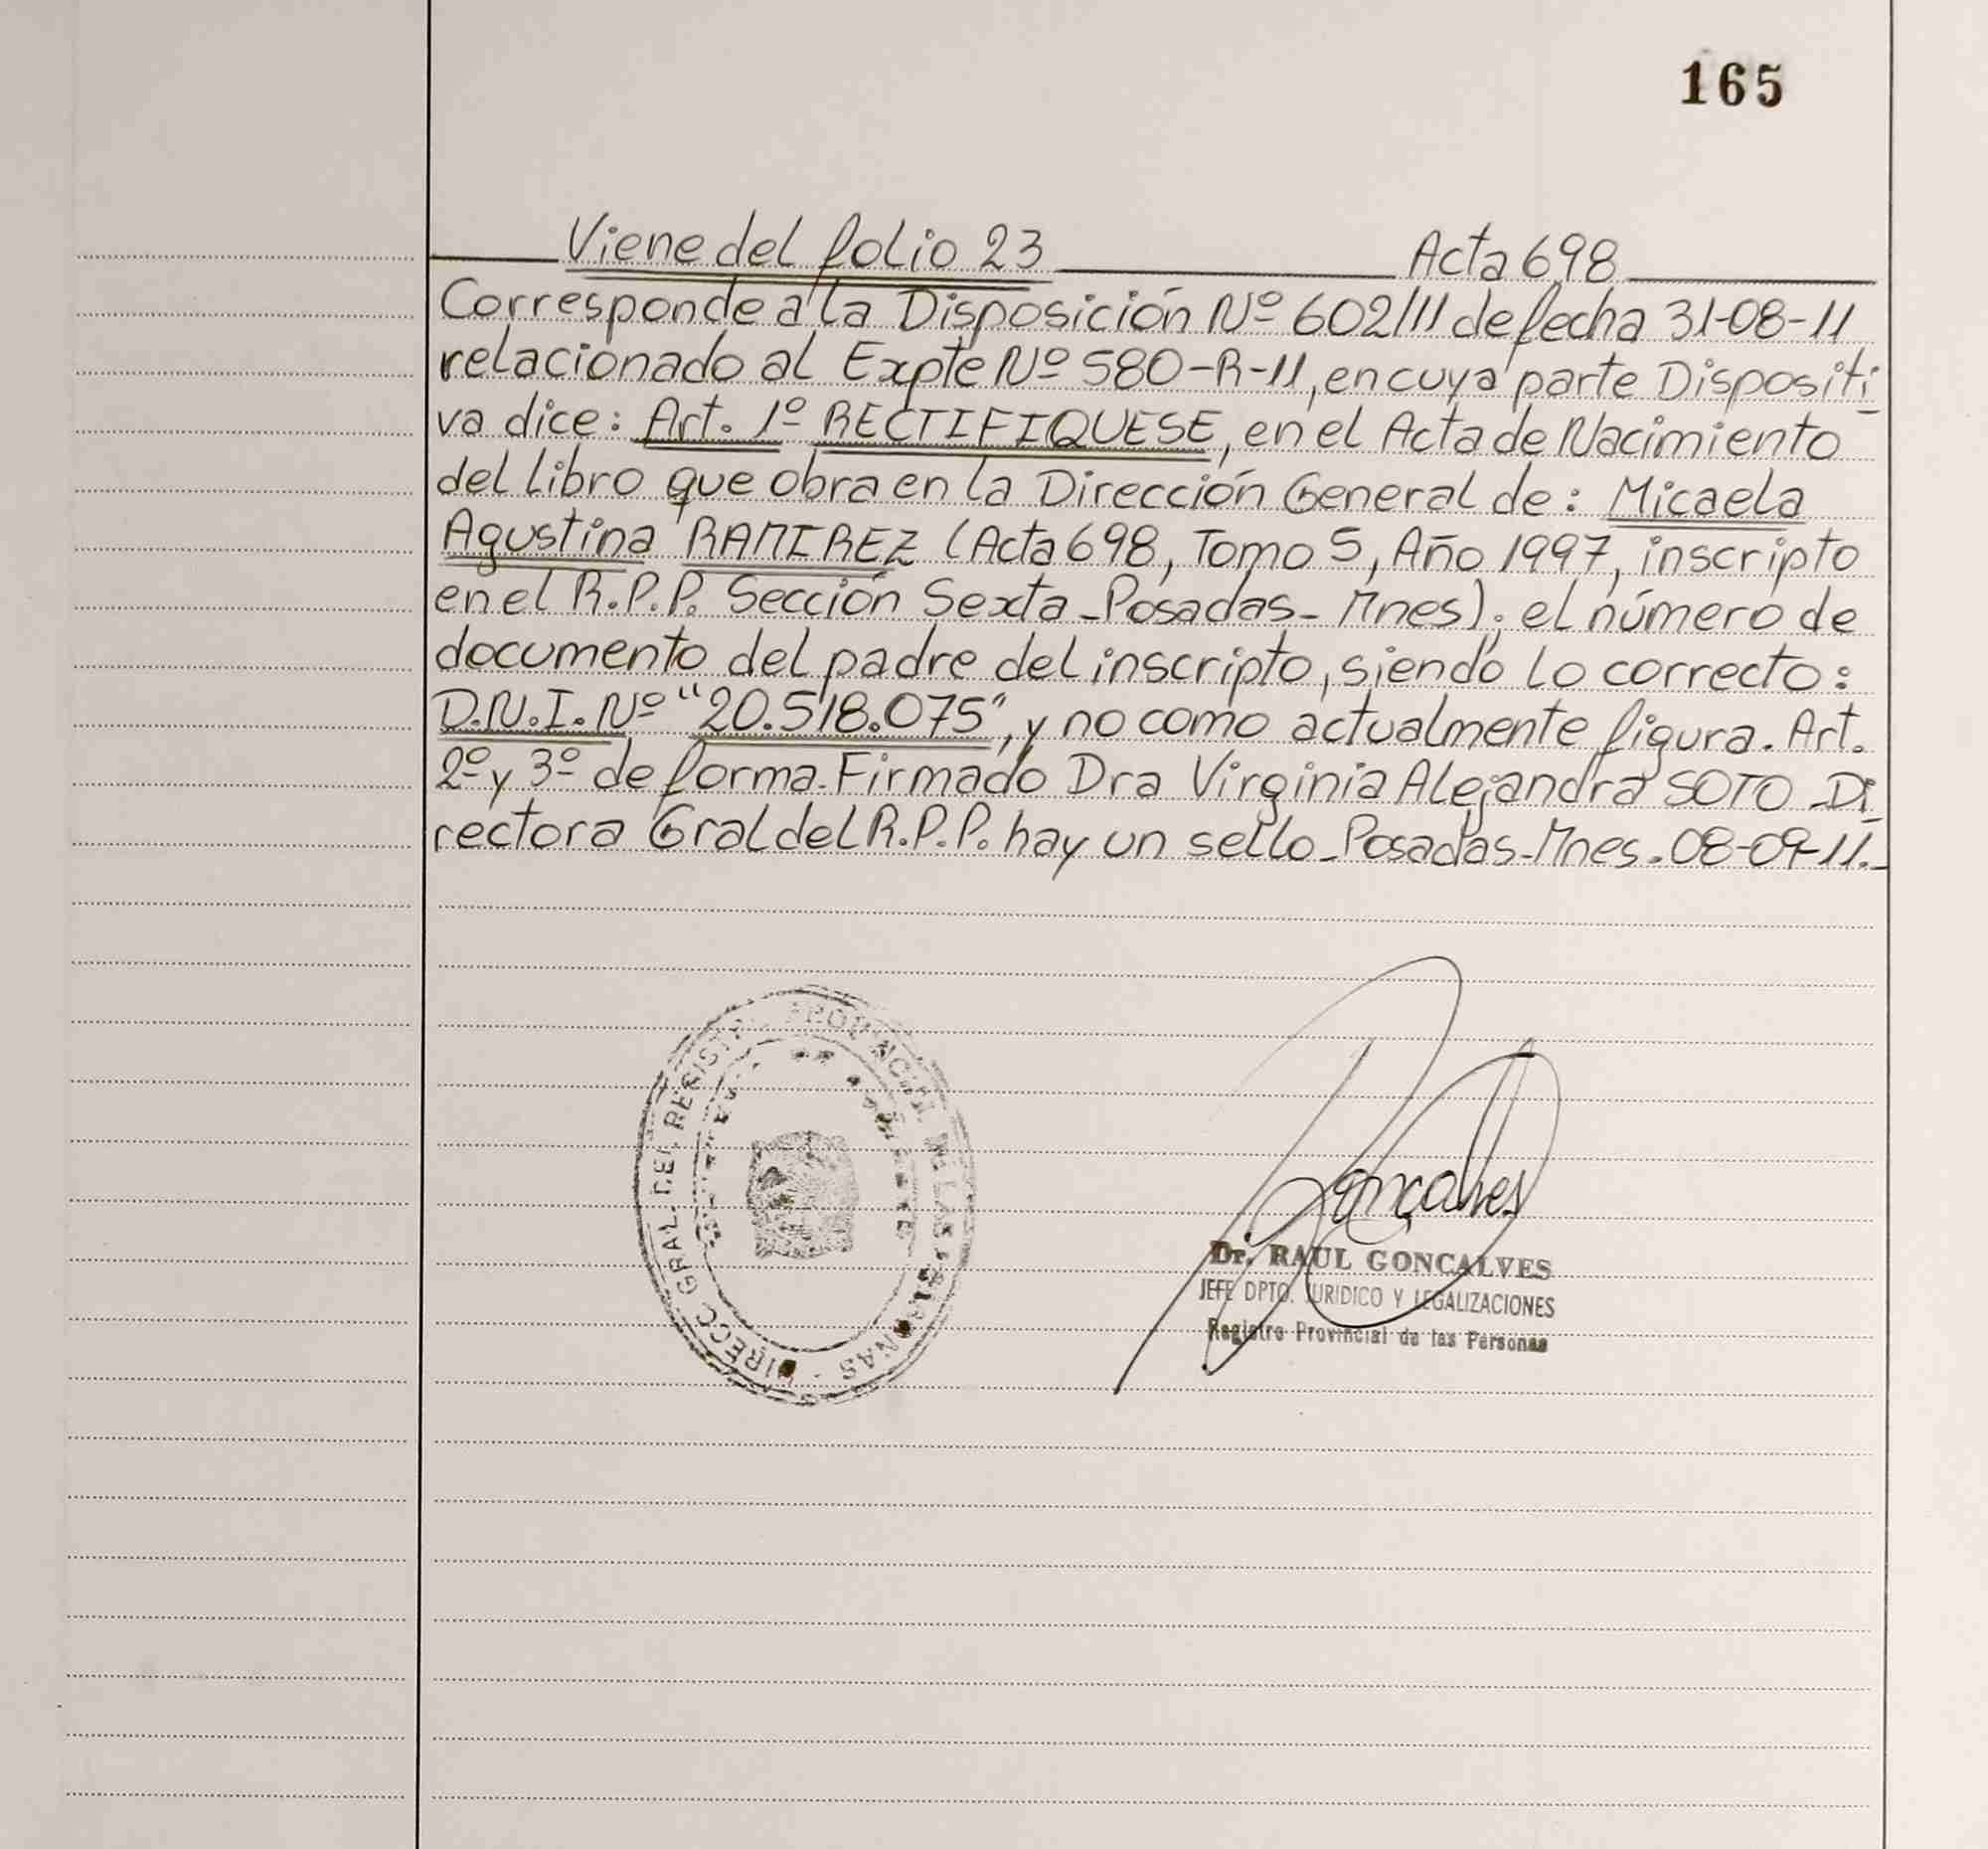 165
Viene del folio 23 Acta 698
Corresponde a la Disposición Nº 602/11 de fecha 31-08-11
relacionado al Expte Nº 580-R-11, en cuya parte Dispositi
va dice: Art. 1º RECTIFIQUESE, en el Acta de Nacimiento
del libro que obra en la Dirección General de: Micaela
Agustina RAMIREZ (Acta 698, Tomo 5, Año 1997, inscripto
en el R.P.P. Sección Sexta - Posadas - Mnes); el número de
documento del padre del inscripto, siendo lo correcto:
D.N.I. Nº "20.518.075", y no como actualmente figura. Art.
2º y 3º de forma. Firmado Dra Virginia Alejandra SOTO - Di
rectora Gral del R.P.P. hay un sello - Posadas - Mnes. 08-09-11.-
DIRECC GRAL. DEL REGISTRO PROVINCIAL DE LAS PERSONAS
Gonçalves
Dr. RAUL GONCALVES
JEFE DPTO. JURIDICO Y LEGALIZACIONES
Registro Provincial de las Personas